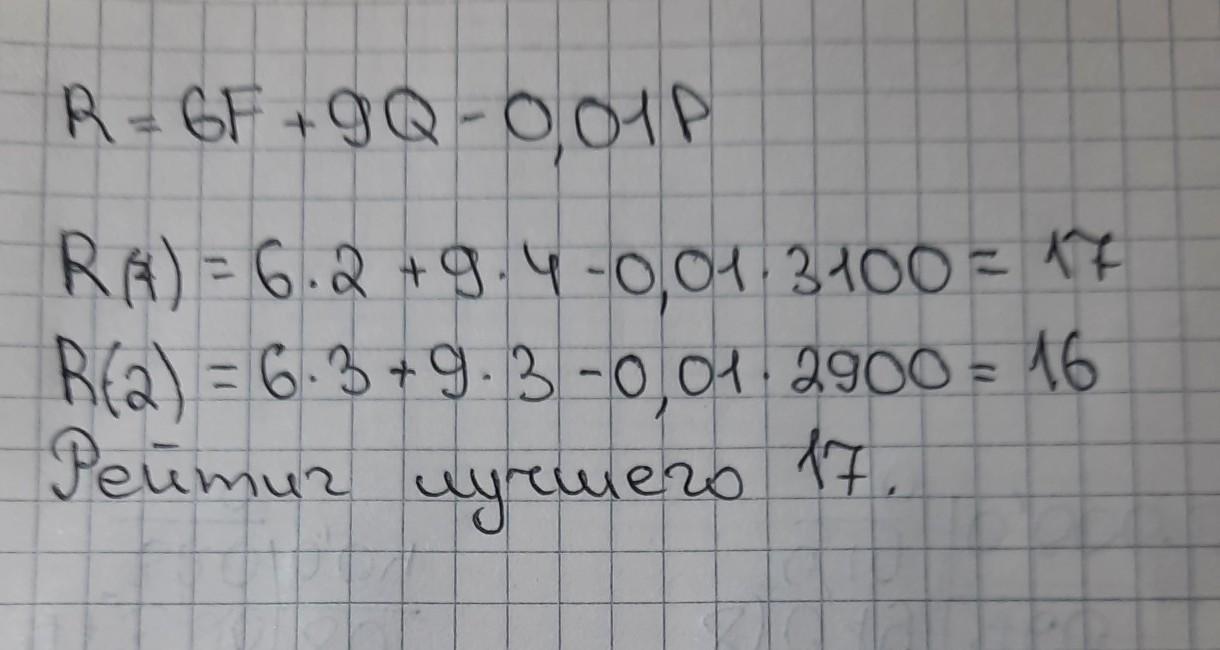 R = 6F + 9Q - 0,01P
R(1) = 6·2 + 9·4 - 0,01·3100 = 17
R(2) = 6·3 + 9·3 - 0,01·2900 = 16
Рейтиг лучшего 17.